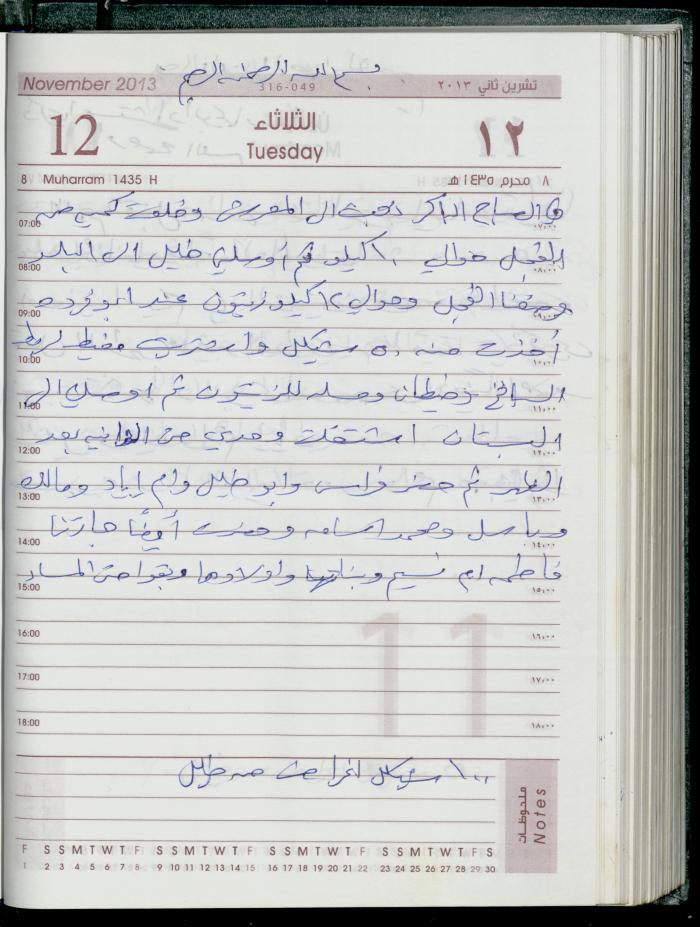 بسم الله الرحمن الرحيم
November 2013 316-049 تشرين ثاني ٢٠١٣
12 الثلاثاء ١٢
Tuesday
8 Muharram 1435 H ٨ محرم ١٤٣٥ هـ
في الصباح الباكر ذهبت الى المفرش وخلعت كمية من
07:00 ٠٧:٠٠
الفجل حوالي ١٠ كيلو ثم أوصلني خليل الى البلد
08:00 ٠٨:٠٠
وضعنا الفجل وحوالي ١٢ كيلو زيتون عند ابو فرده
09:00 ٠٩:٠٠
أخذت منه ٥٠ شيكل واشتريت مغيط لربط
10:00 ١٠:٠٠
وخيطان وسله للزيتون ثم اوصلني الى
11:00 ١١:٠٠
البستان اشتغلت وحدي حتى الثانيه بعد
12:00 ١٢:٠٠
الظهر ثم حضر فراس وابو خليل وام اياد ومالك
13:00 ١٣:٠٠
وباسل ومحمد اسامه وحضرت أيضًا جارتنا
14:00 ١٤:٠٠
فاطمه ام نسيم وبناتها واولادها وبقوا حتى المساء
15:00 ١٥:٠٠
16:00 ١٦:٠٠
17:00 ١٧:٠٠
18:00 ١٨:٠٠
11
١٠٠ شيكل من خليل
ملحوظات
Notes
F S S M T W T F S S M T W T F S S M T W T F S S M T W T F S
1 2 3 4 5 6 7 8 9 10 11 12 13 14 15 16 17 18 19 20 21 22 23 24 25 26 27 28 29 30